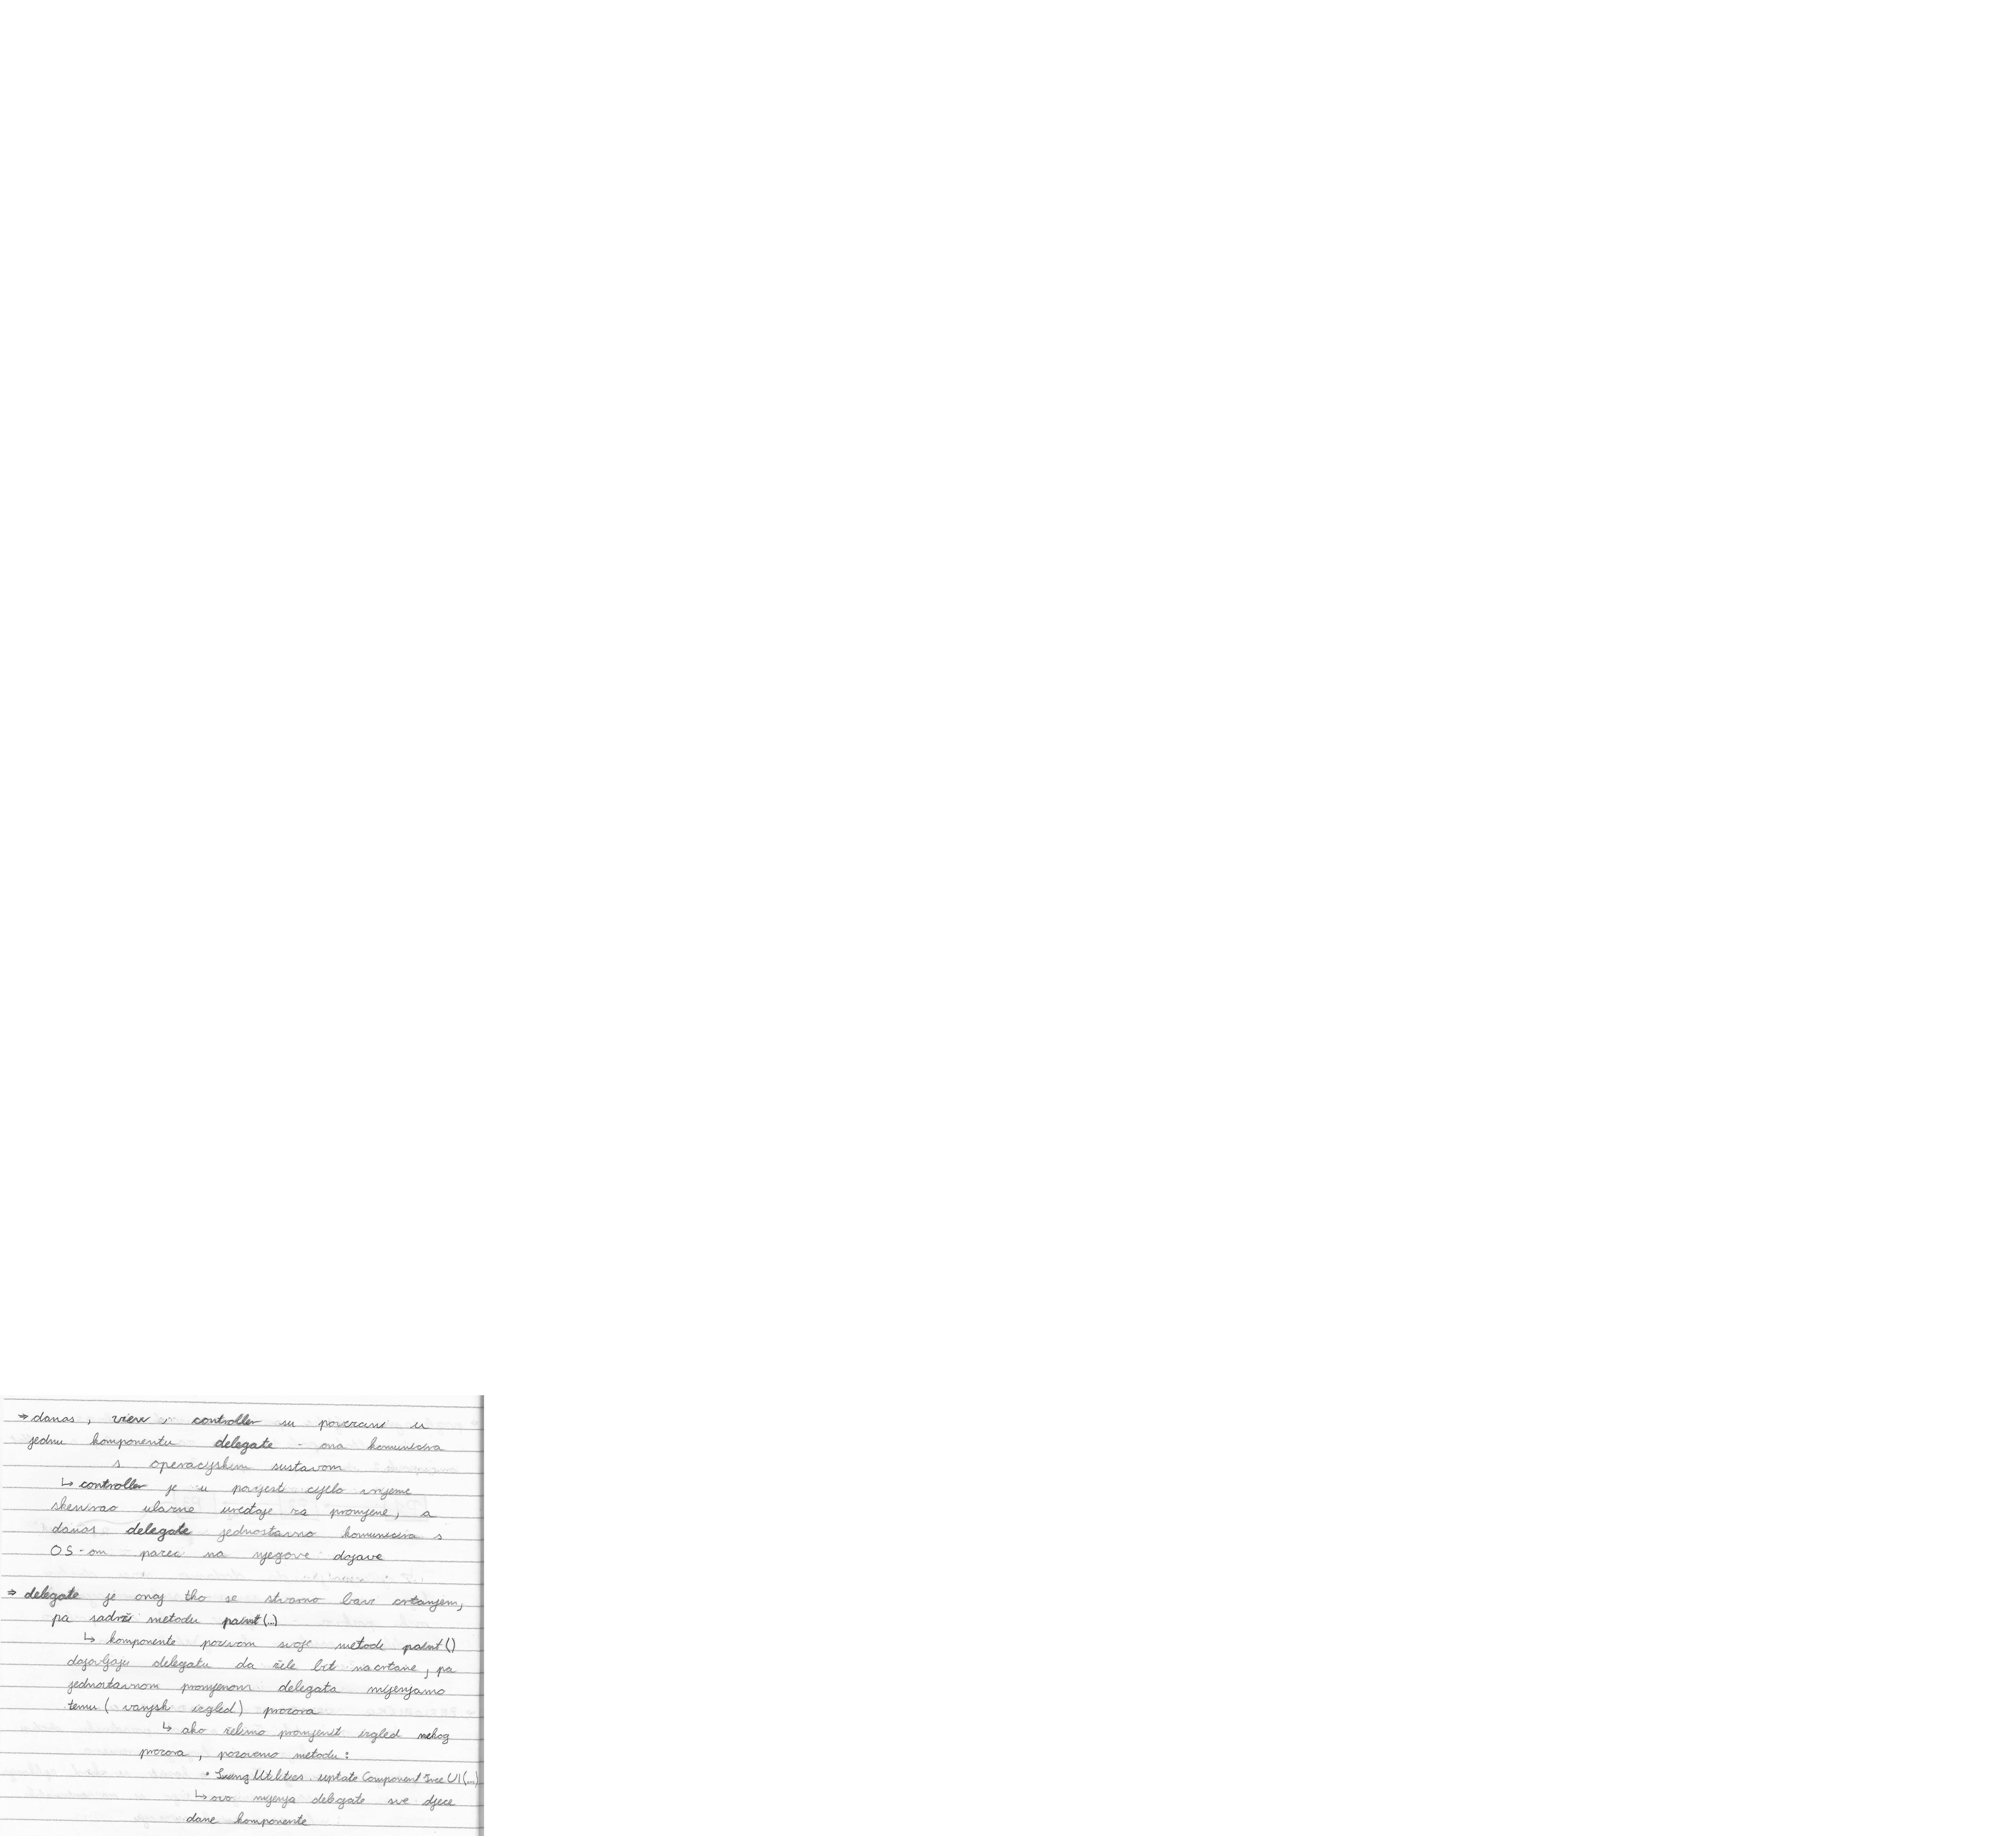 ⇒ danas, view i controller su povezani u
jednu komponentu delegate - ona komunicira
s operacijskim sustavom
↳ controller je u povijesti cijelo vrijeme
skenirao ulazne uređaje za promjene, a
danas delegate jednostavno komunicira s
OS-om pazeć na njegove dojave
⇒ delegate je onaj tko se stvarno bavi crtanjem,
pa sadrži metodu paint(...)
↳ komponente pozivom svoje metode paint()
dojavljaju delegatu da žele bit nacrtane, pa
jednostavnom promjenom delegata mijenjamo
temu (vanjski izgled) prozora
↳ ako želimo promjenit izgled nekog
prozora, pozovemo metodu:
• SwingUtilities.updateComponentTreeUI(...)
↳ ovo mijenja delegate sve djece
dane komponente